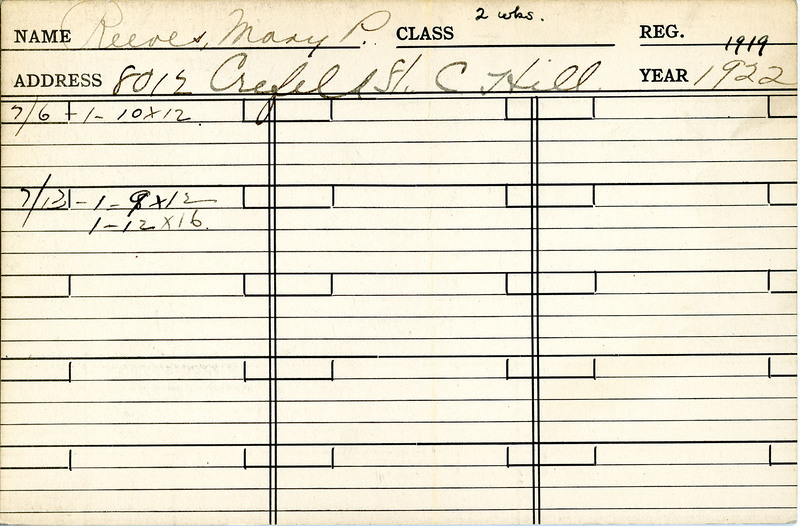 2 wks.
NAME Reeves, Mary P. CLASS REG. 1919
ADDRESS 8012 Crefeld St. C Hill YEAR 1922
7/6 + 1 - 10x12.
7/13 - 1 - 9x12
1 - 12 x 16.